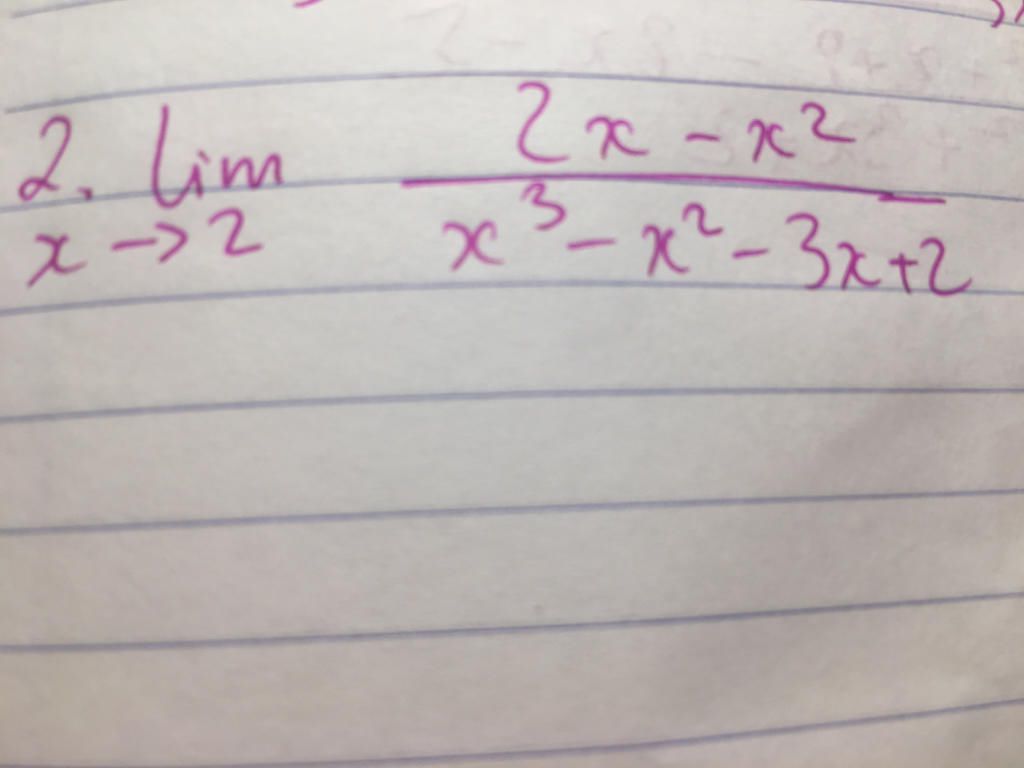 2. lim 2x - x²
x → 2 x³ - x² - 3x + 2